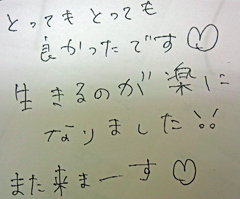 とっても とっても
良かったです♡
生きるのが 楽に
なりました!!
また来まーす♡